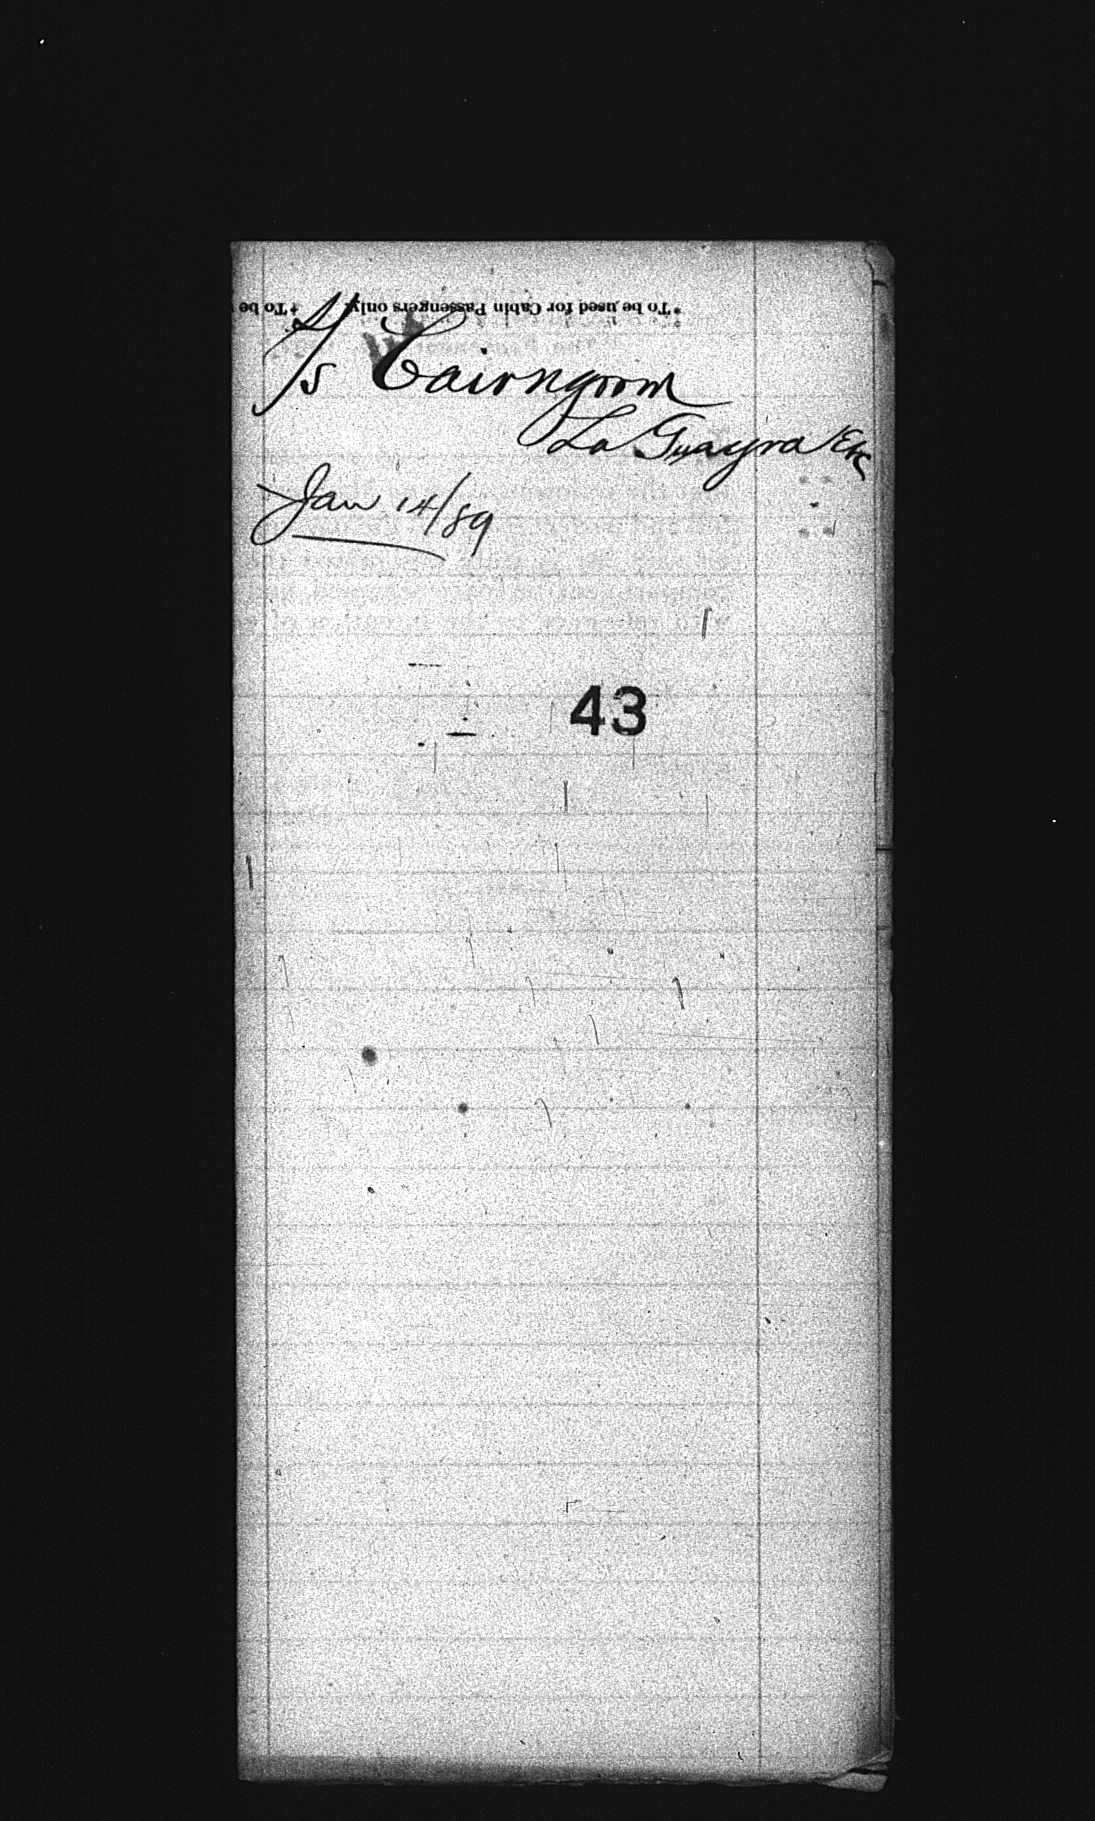 *To be used for Cabin Passengers only. † To be
S/s Cairngorm
La Guayra Etc
Jan 14/89
43